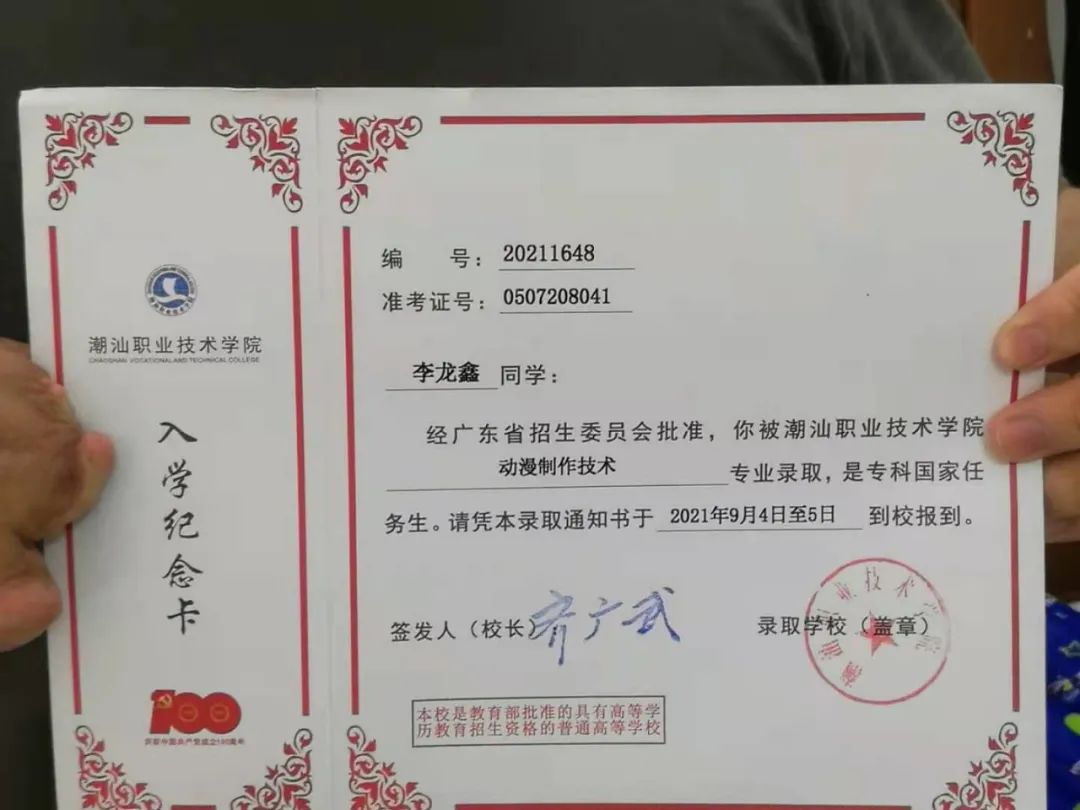 潮汕职业技术学院
CHAOSHAN VOCATIONALAND TECHNICAL COLLEGE
入学纪念卡
100
庆祝中国共产党成立100周年
编 号：20211648
准考证号：0507208041
李龙鑫同学：
经广东省招生委员会批准，你被潮汕职业技术学院
动漫制作技术专业录取，是专科国家任
务生。请凭本录取通知书于 2021年9月4日至5日 到校报到。
签发人（校长）齐广武
录取学校（盖章）
潮汕职业技术学院
本校是教育部批准的具有高等学
历教育招生资格的普通高等学校